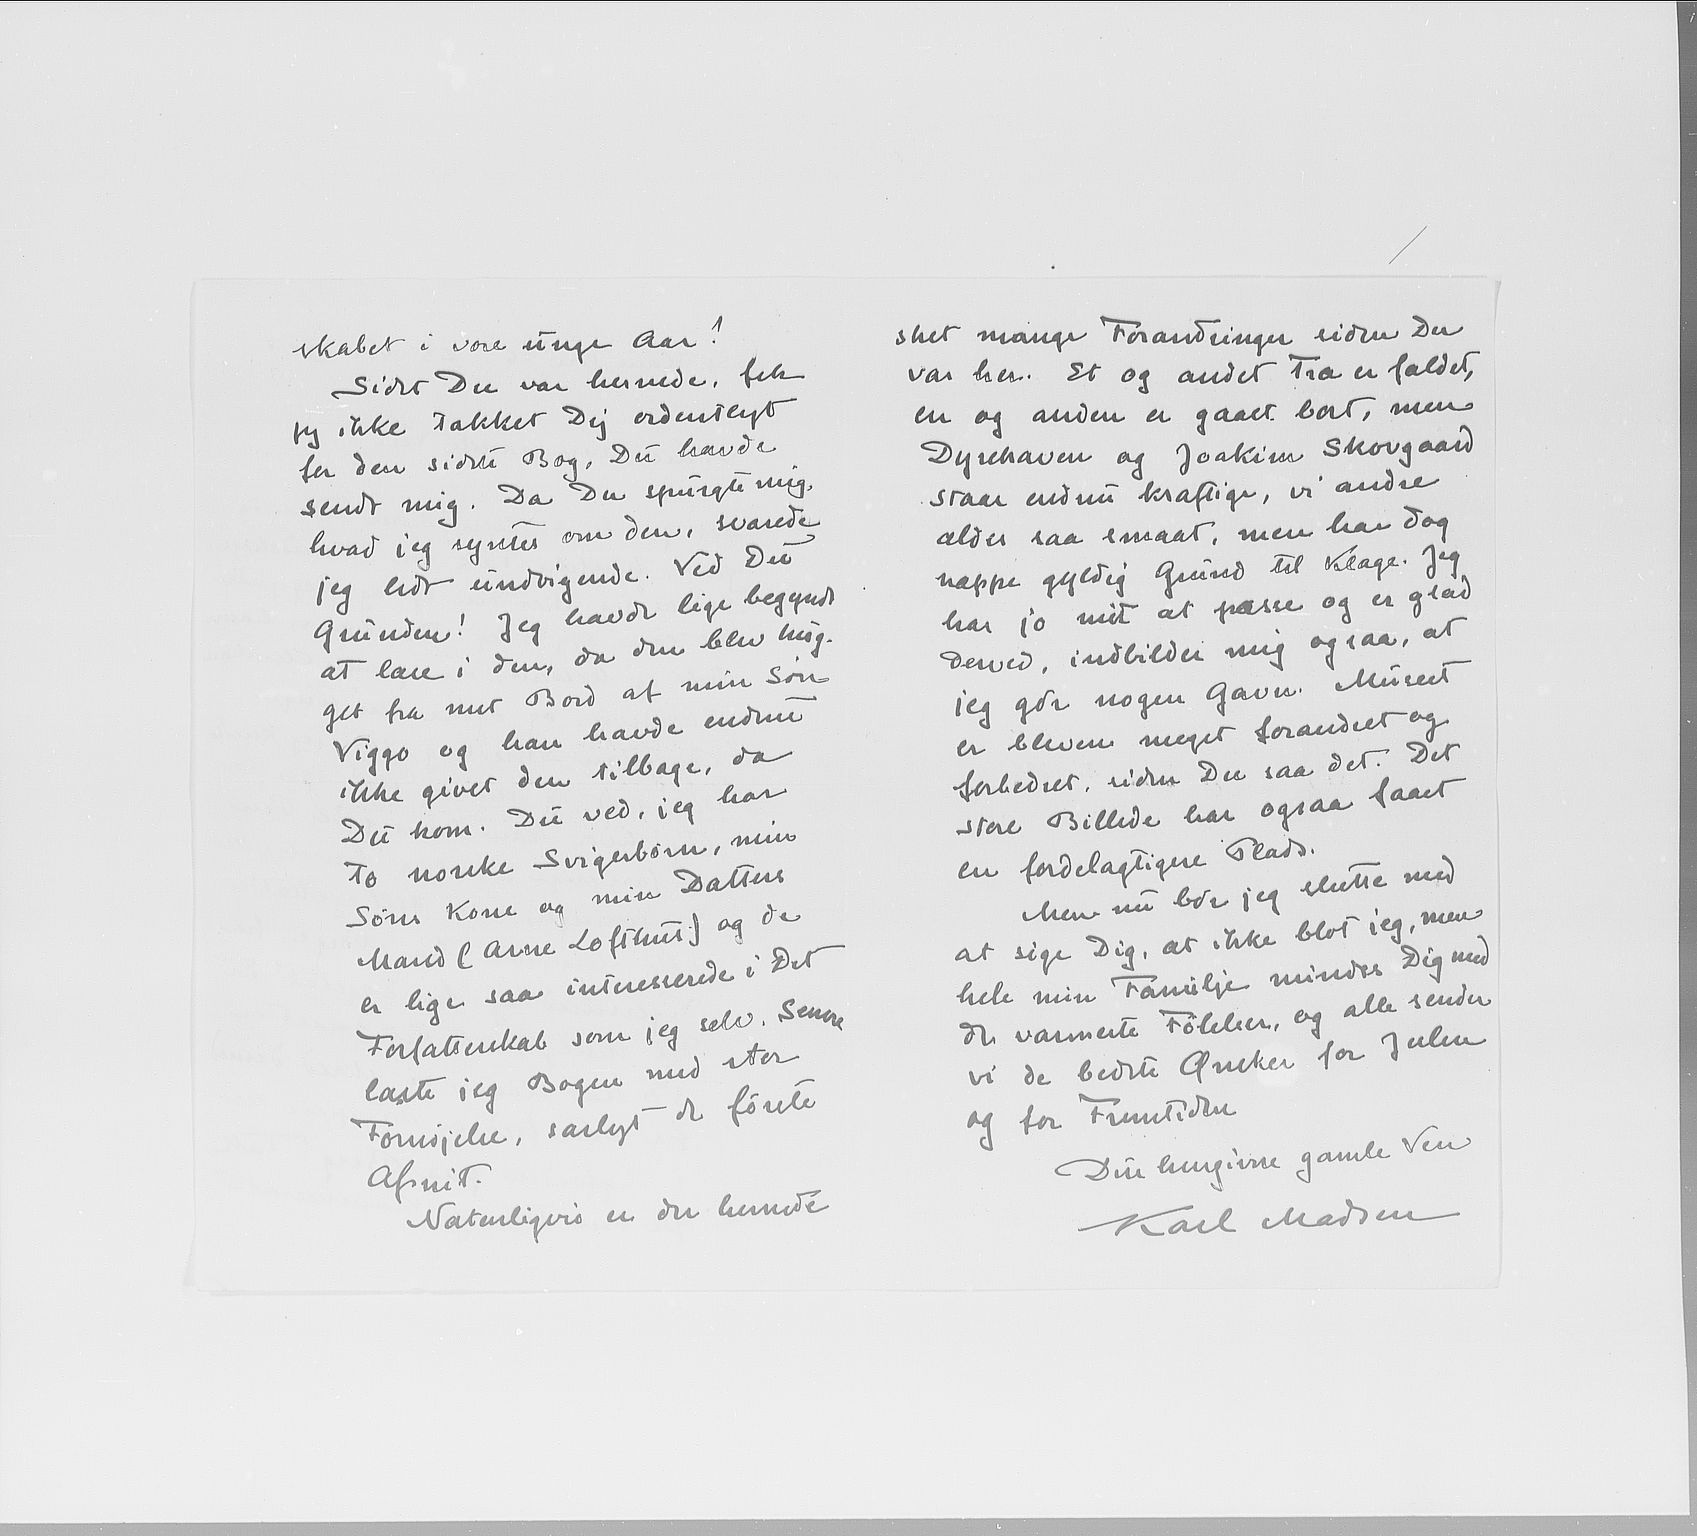 skabet i vore unge Aar!
Sidst Du var hernede, fik
jeg ikke takket Dig ordentligt
for den sidste Bog, Du havde
sendt mig. Da Du spurgte mig,
hvad jeg syntes om den, svarede
jeg lidt undvigende. Ved Du
Grunden! Jeg havde lige begyndt
at læse i den, da den blev hug-
get fra mit Bord af min Søn
Viggo og han havde endnu
ikke givet den tilbage, da
Du kom. Du ved, jeg har
to norske Svigerbørn, min
Søns Kone og min Datters
Mand (Arne Lofthus) og de
er lige saa interesserede i Dit
Forfatterskab som jeg selv. Senere
læste jeg Bogen med stor
Fornøjelse, særligt de første
Afsnit.
Naturligvis er der hernede
sket mange Forandringer siden Du
var her. Et og andet Træ er faldet,
en og anden er gaaet bort, men
Dyrehaven og Joakim Skovgaard
staar endnu kraftige, vi andre
ældes saa smaat, men har dog
næppe gyldig Grund til Klage. Jeg
har jo mit at passe og er glad
derved, indbilder mig ogsaa, at
jeg gør nogen Gavn. Museet
er bleven meget forandret og
forbedret, siden Du saa det. Det
store Billede har ogsaa faaet
en fordelagtigere Plads.
Men nu bør jeg slutte med
at sige Dig, at ikke blot jeg, men
hele min Familje mindes Dig med
de varmeste Følelser, og alle sender
vi de bedste Ønsker for Julen
og for Fremtiden
Din hengivne gamle Ven
Karl Madsen